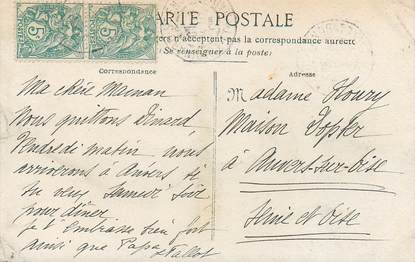 CARTE POSTALE
n'acceptent pas la correspondance au recto
(Se renseigner à la poste)
Correspondance
Adresse
Ma chère Maman
Nous quittons Dinard
Vendredi matin, nous
arriverons à Anvers si
tu veux Samedi soir
pour dîner
je t'Embrasse bien fort
ainsi que Papa
Madame
Maison
à Auvers-sur-Oise
Seine et Oise
5
5